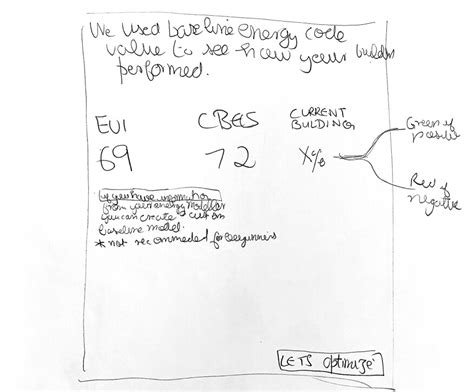 We used baseline energy code
value to see how your building
performed.
EUI
CBES
CURRENT
BUILDING
69
72
X%
Green if
positive
Red if
negative
if you have information
from your energy modeler
you can create custom
baseline model.
* not recommended for beginners
LETS optimize